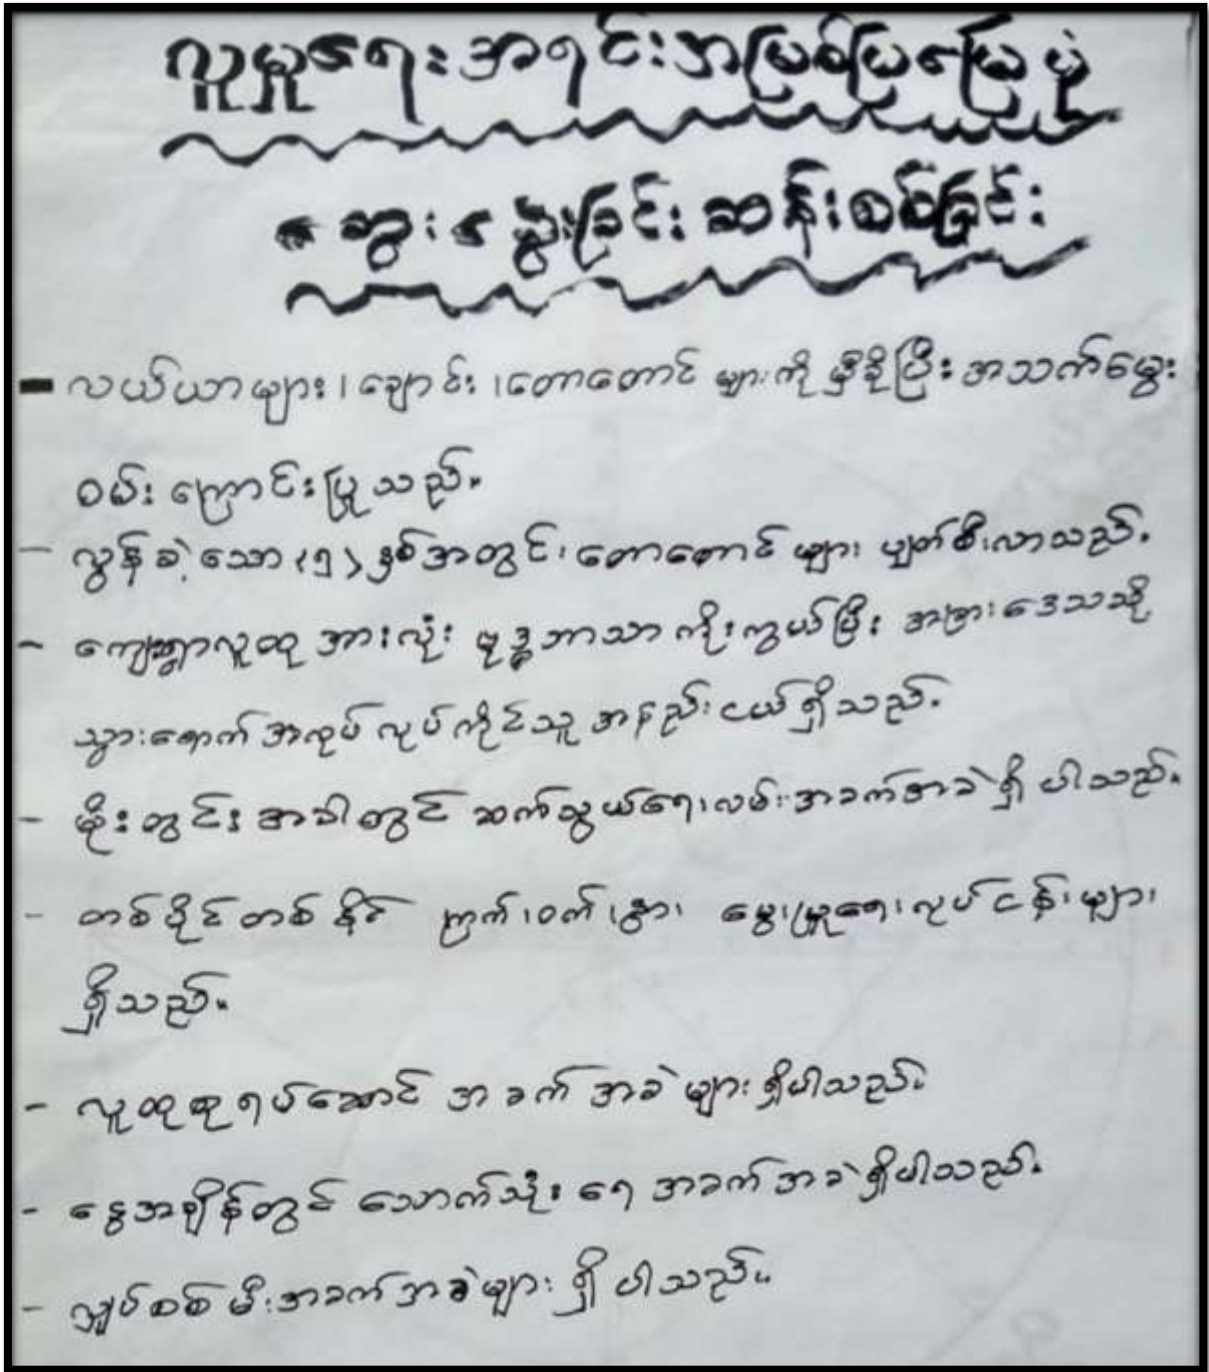 လူမှုရေးအရင်းအမြစ်ပြမြေပုံ
ဆွေးနွေးခြင်းဆန်းစစ်ခြင်း
- လယ်ယာများ၊ ချောင်း၊ တောတောင် များကို မှီခိုပြီး အသက်မွေး
ဝမ်းကြောင်းပြုသည်။
- လွန်ခဲ့သော (၅) နှစ်အတွင်း တောတောင် များ ပျက်စီးလာသည်။
- ကျေးရွာလူထု အားလုံး ဗုဒ္ဓဘာသာ ကိုးကွယ်ပြီး အခြားဒေသသို့
သွားရောက် အလုပ် လုပ်ကိုင်သူ အနည်းငယ် ရှိသည်။
- မိုးတွင်း အခါတွင် ဆက်သွယ်ရေးလမ်းအခက်အခဲ ရှိ ပါသည်။
- တစ်ပိုင်တစ်နိုင် ကြက်၊ ဝက်၊ နွား မွေးမြူရေးလုပ်ငန်းများ
ရှိသည်။
- လူထုစုရပ်ဆောင် အခက် အခဲ များ ရှိပါသည်။
- နွေအချိန်တွင် သောက်သုံး ရေ အခက် အခဲ ရှိပါသည်။
- လျှပ်စစ် မီးအခက် အခဲများ ရှိ ပါသည်။